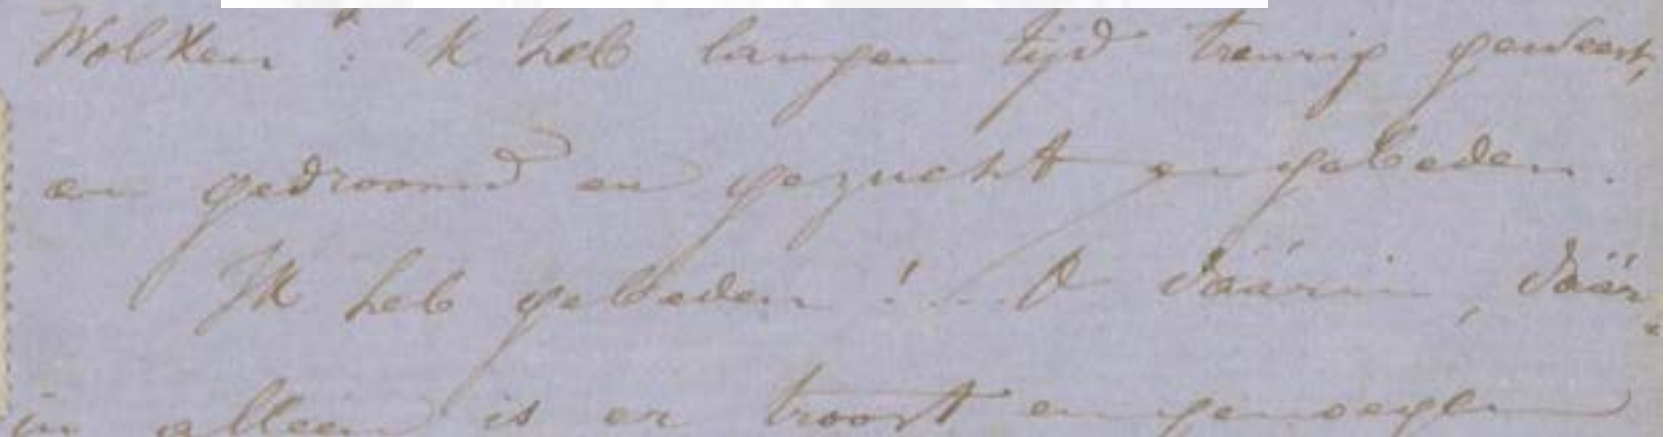 Wolken": 'k heb langen tijd treurig geweest,
en gedroomd en gezucht en gebeden.
Ik heb gebeden!... O dáárin, dáár-
in alleen is er troost en genoegen